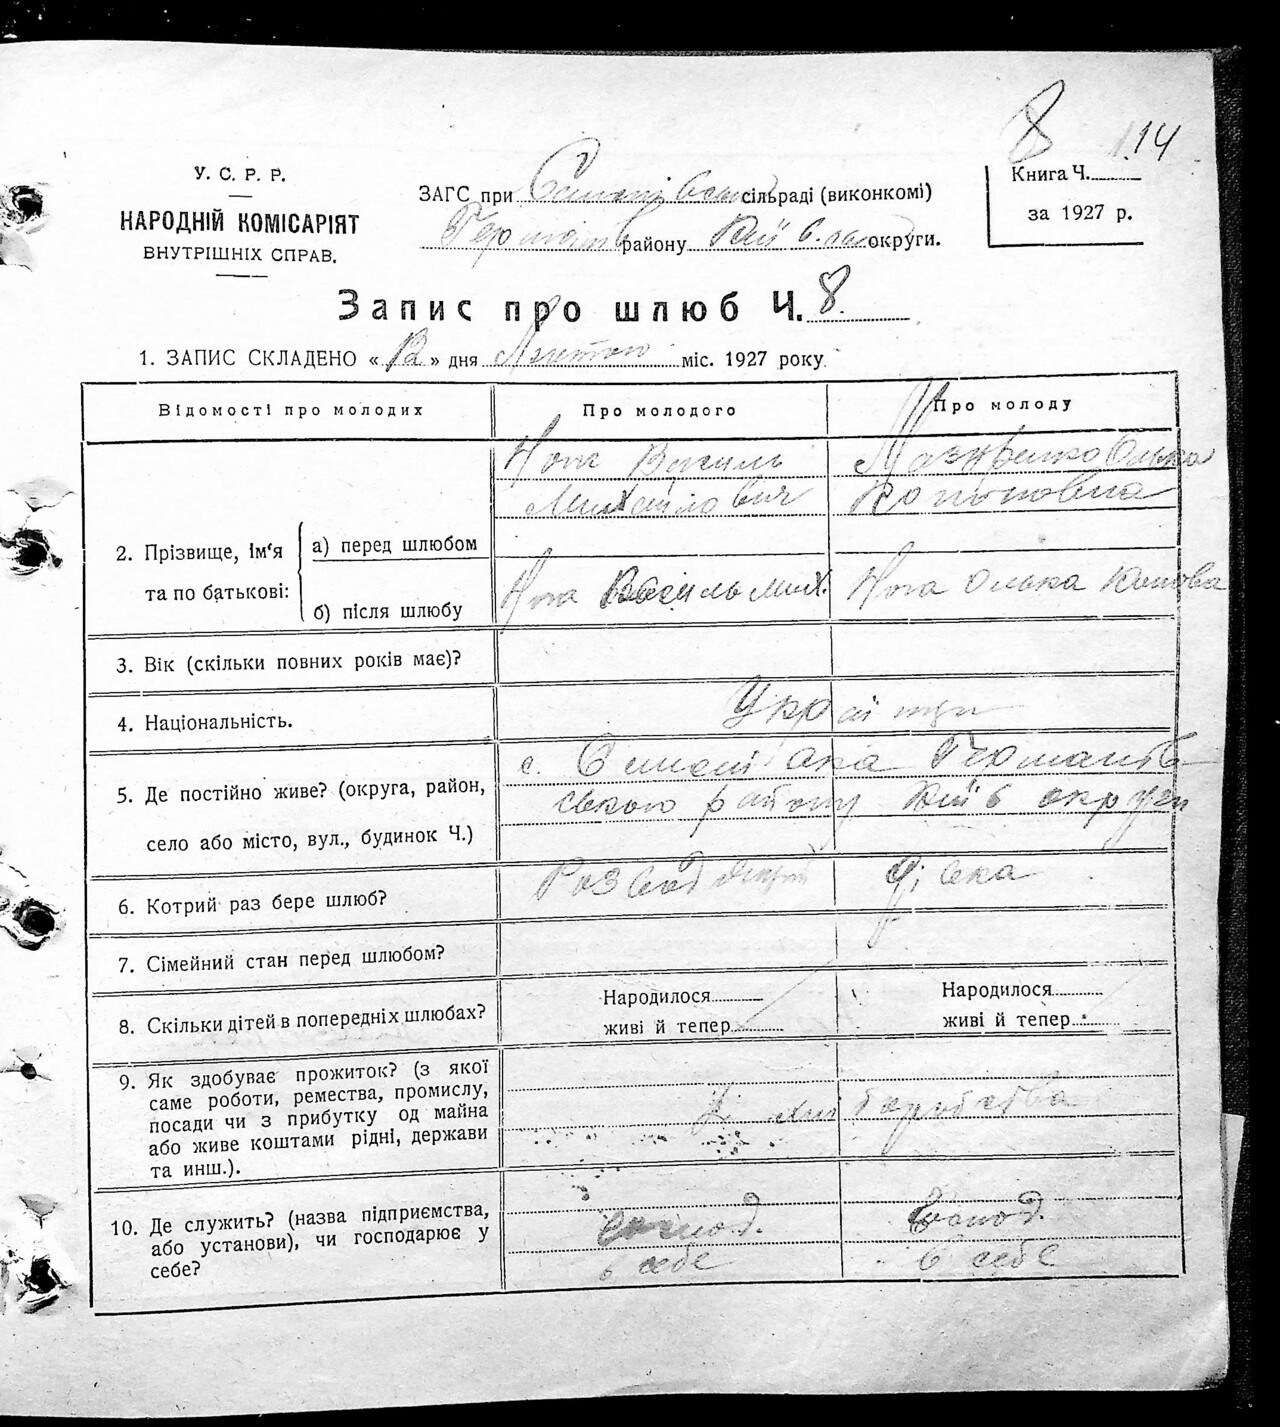 8 14
У. С. Р. Р.
НАРОДНІЙ КОМІСАРІЯТ
ВНУТРІШНІХ СПРАВ.
ЗАГС при сільраді (виконкомі)
району Київ округи.
Книга Ч.
за 1927 р.
Запис про шлюб Ч. 8.
1. ЗАПИС СКЛАДЕНО « 12 » дня Лютого міс. 1927 року
Відомості про молодих Про молодого Про молоду
2. Прізвище, ім'я та по батькові:
а) перед шлюбом
Нога Василь
Михайлович
Мазуренко Олька
Кононовна
б) після шлюбу
Нога Василь Мих. Нога Олька
3. Вік (скільки повних років має)?
4. Національність.
Українці
5. Де постійно живе? (округа, район,
село або місто, вул., будинок Ч.)
с.
ською району Київ округи
6. Котрий раз бере шлюб?
Дівка
7. Сімейний стан перед шлюбом?
8. Скільки дітей в попередніх шлюбах?
Народилося
живі й тепер
Народилося
живі й тепер
9. Як здобуває прожиток? (з якої
саме роботи, ремества, промислу,
посади чи з прибутку од майна
або живе коштами рідні, держави
та инш.).
10. Де служить? (назва підприємства,
або установи), чи господарює у
себе?
господ.
в себе
господ.
в себе